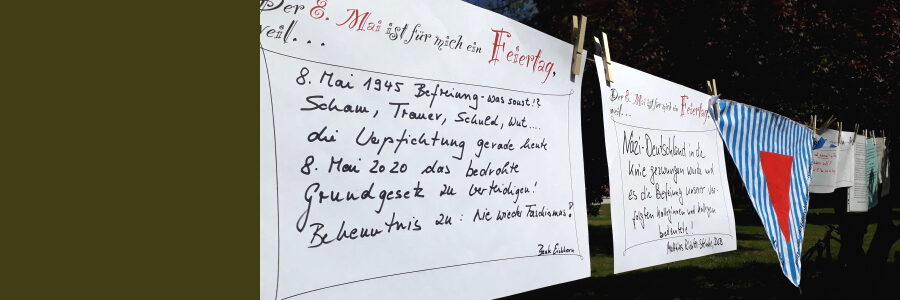 Der 8. Mai ist für mich ein Feiertag,
weil...
8. Mai 1945 Befreiung - was sonst!?
Scham, Trauer, Schuld, Wut....
die Verpflichtung gerade heute
8. Mai 2020 das bedrohte
Grundgesetz zu verteidigen!
Bekenntnis zu: Nie wieder Faschismus!
Der 8. Mai ist für mich ein Feiertag,
weil...
Nazi-Deutschland in die
Knie gezwungen wurde und
es die Befreiung unserer ver-
folgten Kolleginnen und Kollegen
bedeutete!